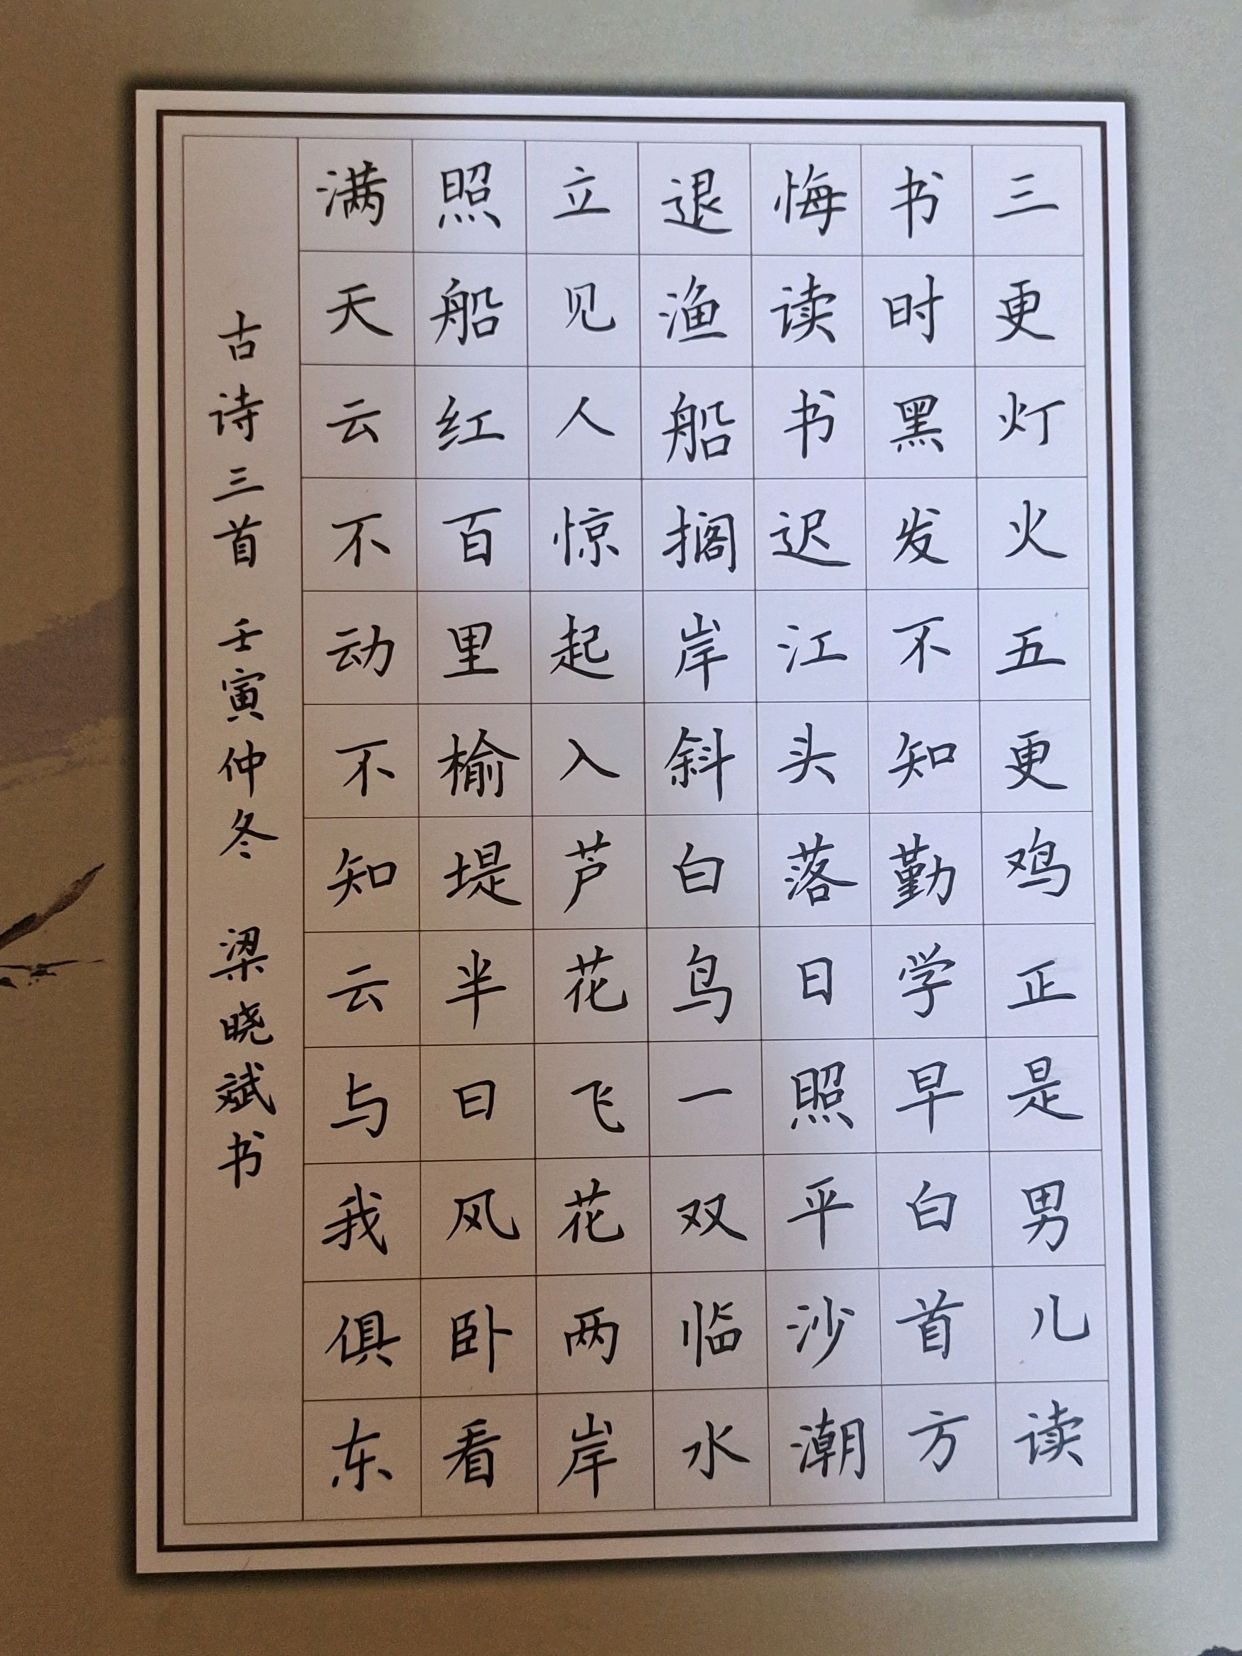 三更灯火五更鸡正是男儿读
书时黑发不知勤学早白首方
悔读书迟江头落日照平沙潮
退渔船搁岸斜白鸟一双临水
立见人惊起入芦花飞花两岸
照船红百里榆堤半日风卧看
满天云不动不知云与我俱东
古诗三首 壬寅仲冬 梁晓斌书